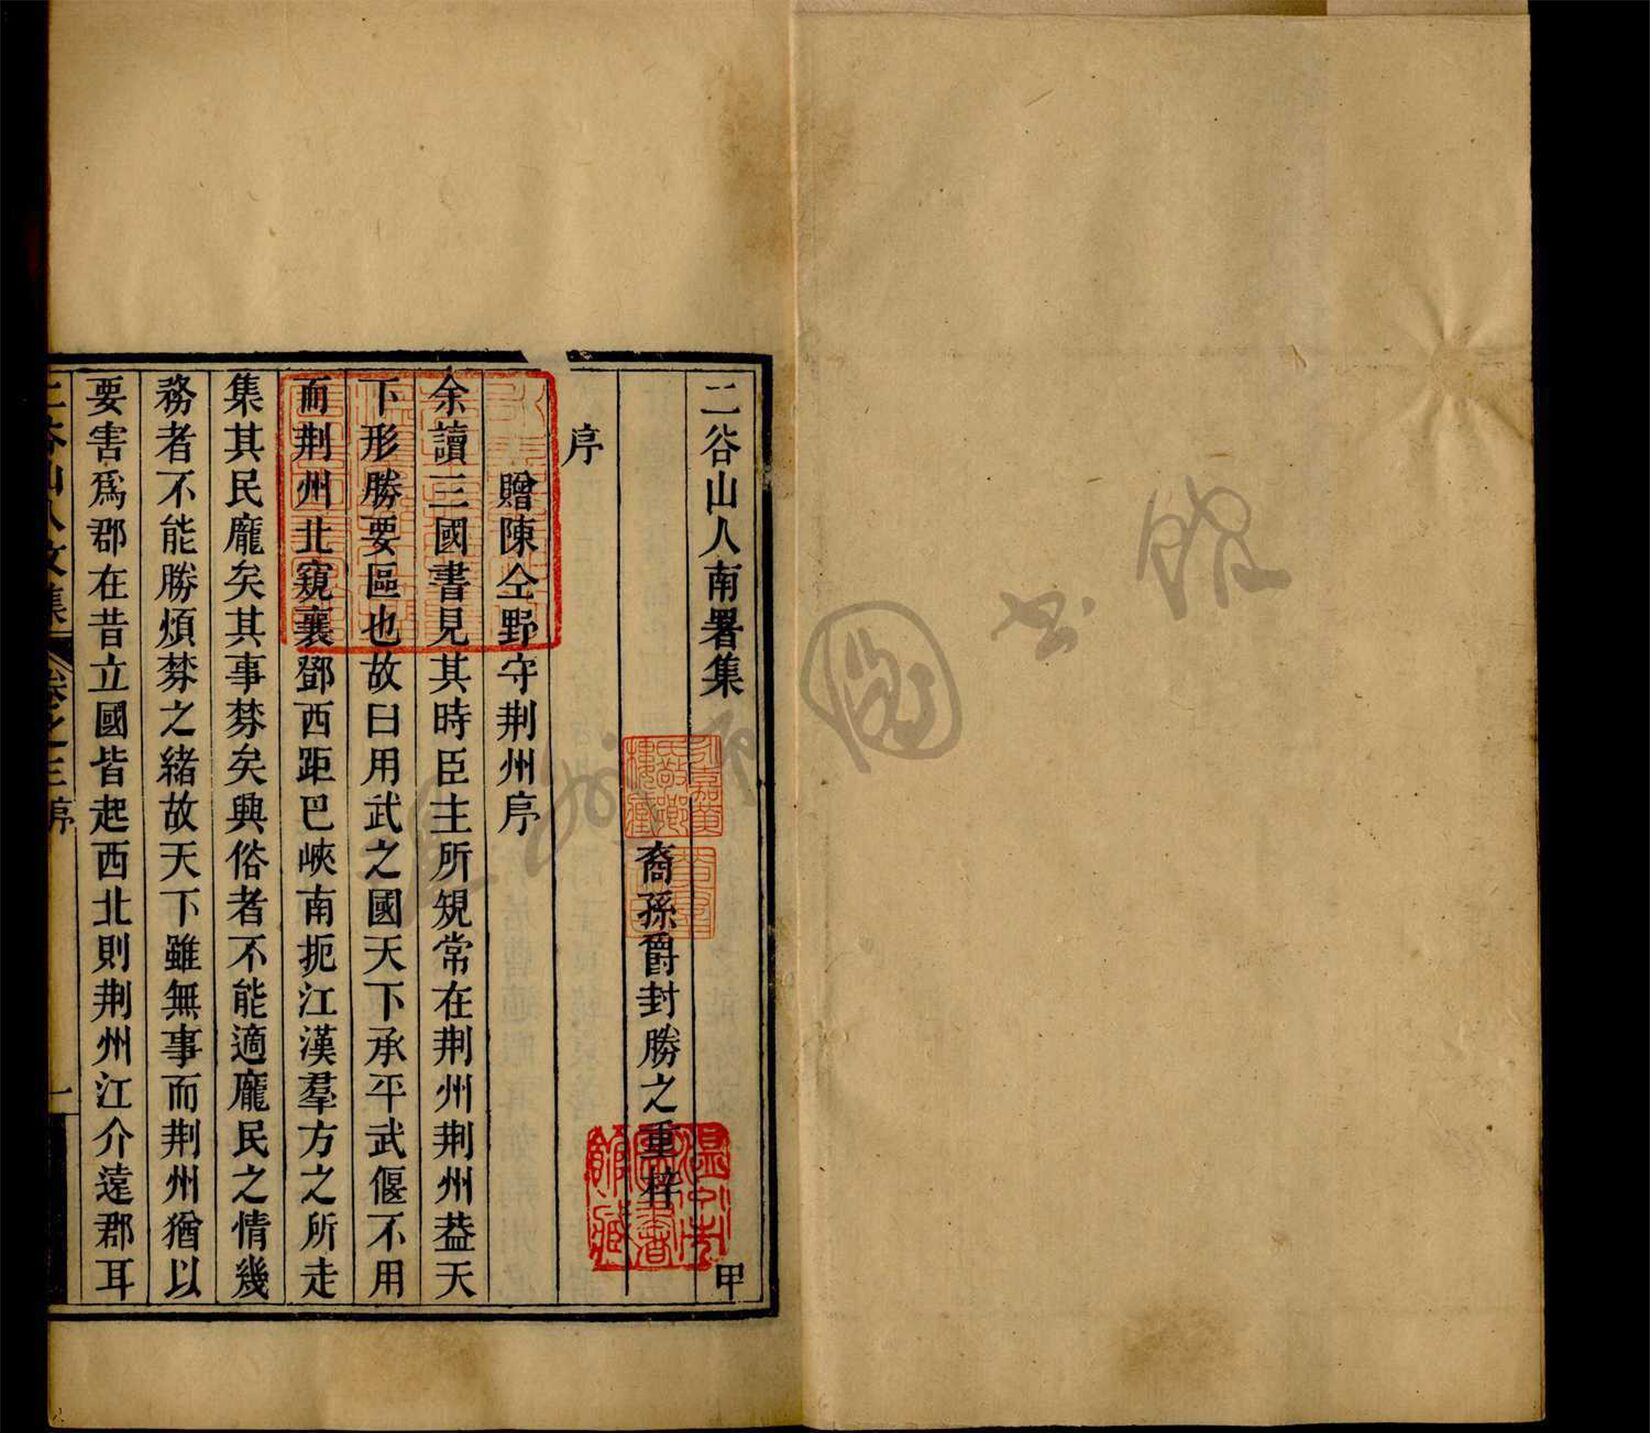 二谷山人南署集 甲
裔孫爵封勝之重梓
序
贈陳仝野守荆州序
余讀三國書見其時臣主所規常在荆州荆州益天
下形勝要區也故曰用武之國天下承平武偃不用
而荆州北窺襄鄧西距巴峽南扼江漢羣方之所走
集其民龐矣其事棼矣興俗者不能適龐民之情幾
務者不能勝煩棼之緒故天下雖無事而荆州猶以
要害爲郡在昔立國皆起西北則荆州江介遠郡耳
二谷山人文集 卷之三 序 一
永嘉黄氏敬鄉樓藏
溫州市圖書館藏
溫州市圖書館